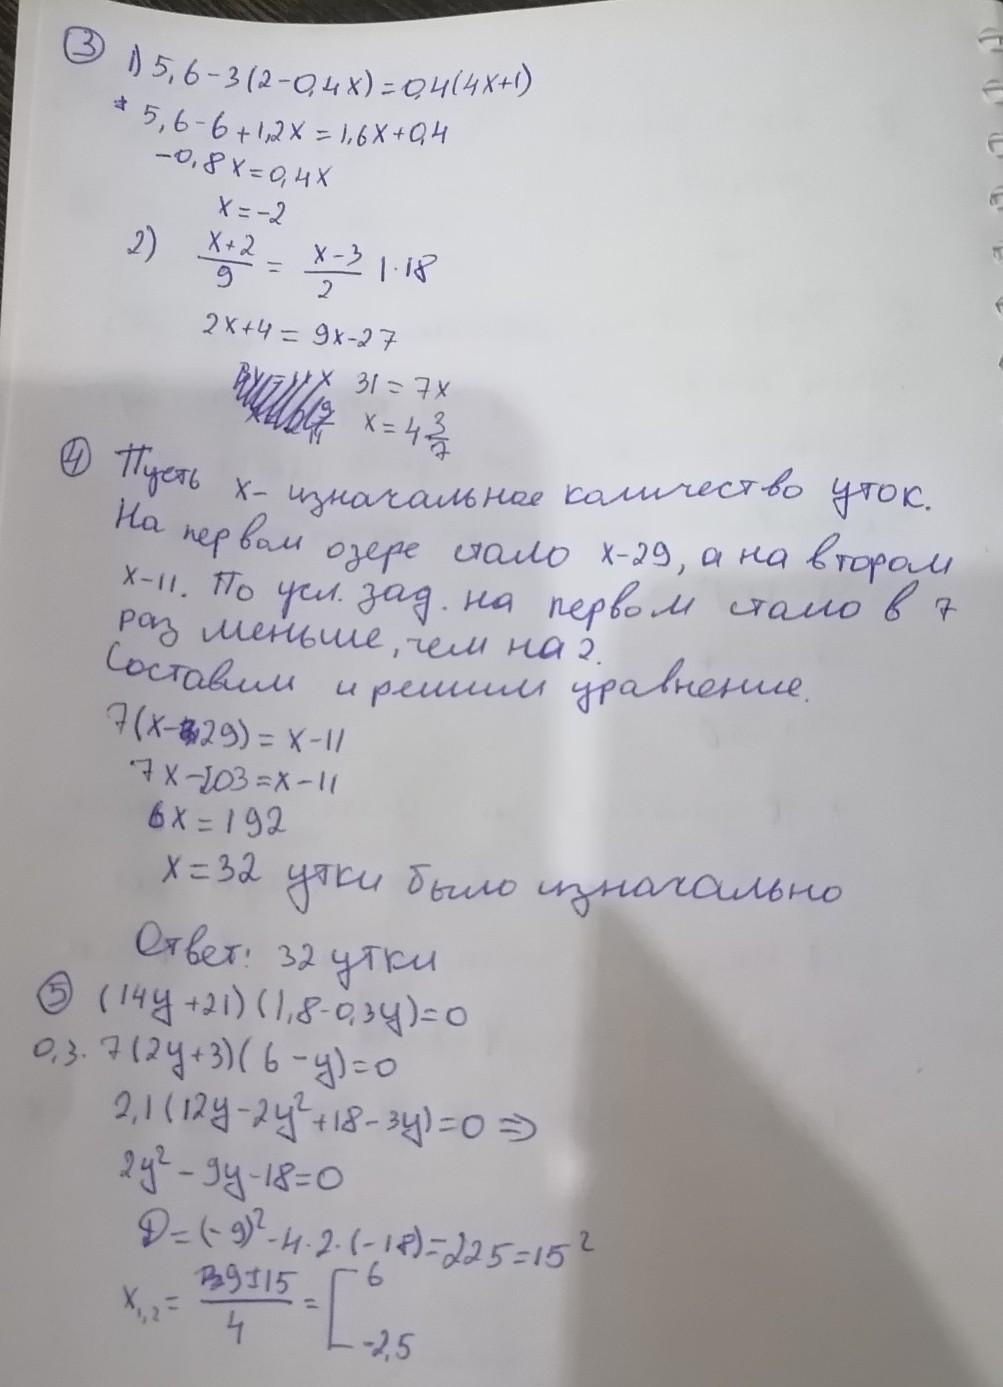 ③ 1) 5,6-3(2-0,4x)=0,4(4x+1)
5,6-6+1,2x=1,6x+0,4
-0,8x=0,4x
x=-2
2) x+2/9 = x-3/2 |·18
2x+4=9x-27
31=7x
x=4 3/7
④ Пусть x- изначальное количество уток.
На первом озере стало x-29, а на втором
x-11. По усл. зад. на первом стало в 7
раз меньше, чем на 2.
Составим и решим уравнение.
7(x-29)=x-11
7x-203=x-11
6x=192
x=32 утки было изначально
Ответ: 32 утки
⑤ (14y+21)(1,8-0,3y)=0
0,3·7(2y+3)(6-y)=0
2,1(12y-2y²+18-3y)=0 ⇒
2y²-9y-18=0
D=(-9)²-4·2·(-18)=225=15²
x1,2= 9±15/4 = [ 6
-2,5